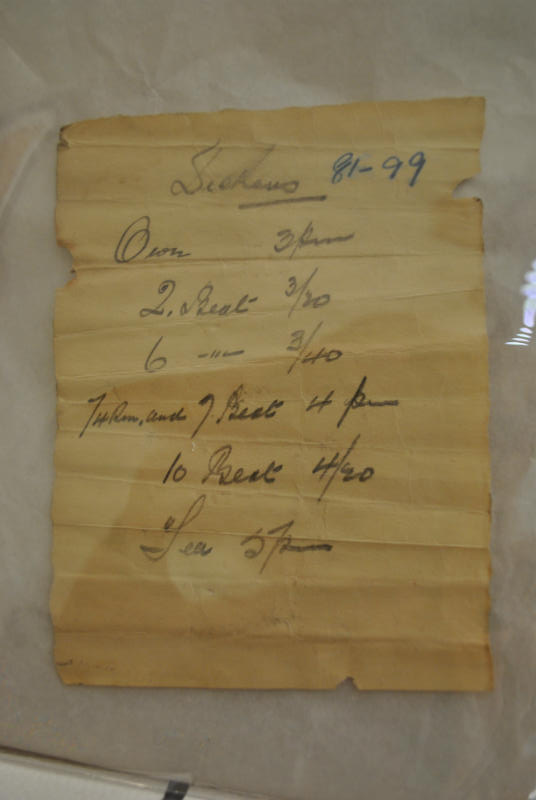 Dickens 81-99
Own 3pm
2. Beat 3/20
6 -"- 3/40
and 7. Beat 4 pm
10 Beat 4/20
Tea 5pm